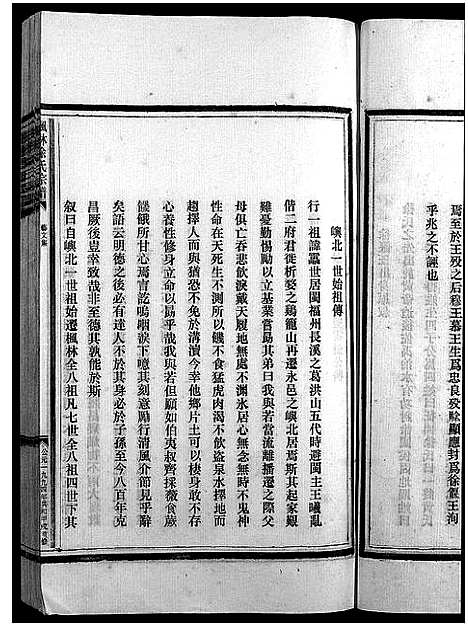 焉至於王歿之后卷王慕王生爲忠良歿除顯應封爲徐偃王洵
乎兆之不誣也
嶼北一世始祖傳
行一祖諱諷世居閩福州長溪之葛洪山五代時避閩主王曦亂
偕二府君徙析婺之鷄籠山再遷永邑之嶼北居焉斯其起家艱
難憂勤惕勵以立基業嘗曷其弟曰我與若當流離播遷之際父
母俱亡吞悲飲淚戴天履地無處不淵氷居心無念無時不鬼神
臨汝所以在天死生不測所以饑不食猛虎肉渴不飲盜泉水定
趨擇人而與猶恐不免於溝瀆今幸他鄉片土可以棲身敢不存
心養性修身立命以昜乎哉我與若但願如伯夷叔齊採薇食蕨
餓餓所甘心焉言訖嗚咽淚下噫其刻意勵行清風介節見乎辭
矣語云明德之後必有達人不於其身必於子孫至今八百年克
昌厥後豈幸致哉非至德其孰能於斯
叙曰自嶼北一世祖始遷楓林全八祖凡七世全八祖四世下其
楓林徐氏宗譜
藝文集